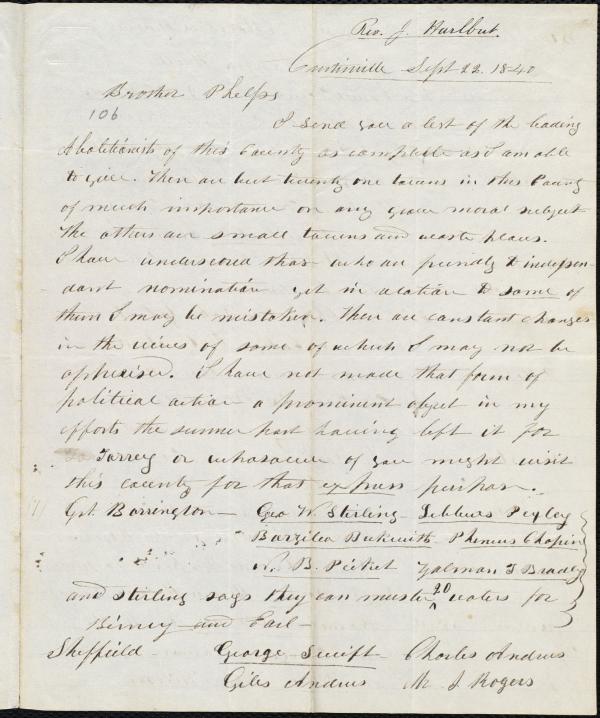 Rev. J. Hurlbut.
Curtisville Sept 22. 1840
Brother Phelps
106
I send you a list of the leading
Abolitionists of this County as complete as I am able
to give. There are but twenty one towns in this County
of much importance on any grave moral subject
The others are small towns and waste places.
I have underscored those who are friendly to indepen-
dant nomination yet in relation to some of
them I may be mistaken. There are constant changes
in the views of some of which I may not be
apprised. I have not made that form of
political action a prominent object in my
efforts the summer past having left it for
Torrey or whosoever of you might visit
this county for that express purpose.
Grt Barrington — Geo W. Sterling Lebbeus Pixley
Barzilea Beckwith Phineus Chapin
W. B. Picket Zalmon T Bradley
and Sterling says they can muster 20 voters for
Birney and Earl —
Sheffield — George Swift Charles Andrus
Giles Andrus M. J. Rogers